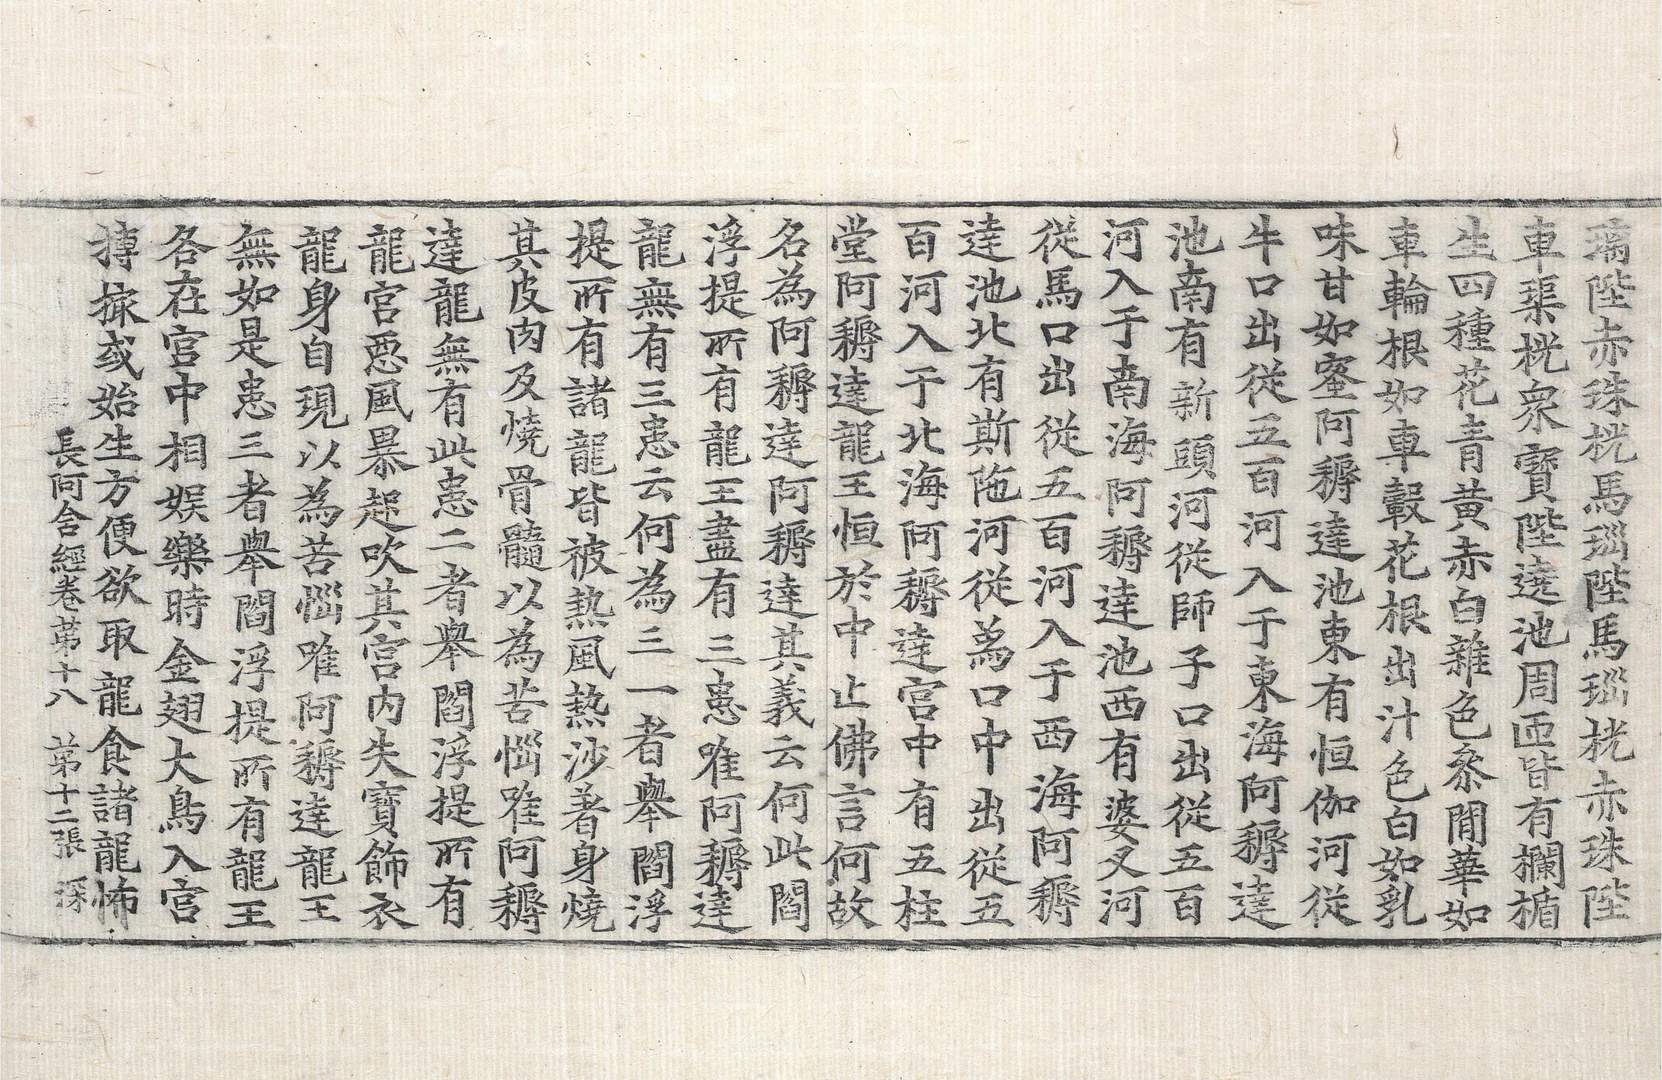 璃陛赤珠桄馬瑙陛馬瑙桄赤珠陛
車𤦲桄衆寶陛遶池周匝皆有欄楯
生四種花青黃赤白雜色叅間華如
車輪根如車轂花根出汁色白如乳
味甘如蜜阿耨達池東有恒伽河從
牛口出從五百河入于東海阿耨達
池南有新頭河從師子口出從五百
河入于南海阿耨達池西有婆叉河
從馬口出從五百河入于西海阿耨
達池北有斯陁河從爲口中出從五
百河入于北海阿耨達宮中有五柱
堂阿耨達龍王恒於中止佛言何故
名為阿耨達阿耨達其義云何此閻
浮提所有龍王盡有三患唯阿耨達
龍無有三患云何為三一者舉閻浮
提所有諸龍皆被熱風熱沙著身燒
其皮肉及燒骨髓以為苦惱唯阿耨
達龍無有此患二者舉閻浮提所有
龍宮惡風暴起吹其宮內失寶飾衣
龍身自現以為苦惱唯阿耨達龍王
無如是患三者舉閻浮提所有龍王
各在宮中相娛樂時金翅大鳥入宮
搏撮或始生方便欲取龍食諸龍怖
長阿含經卷第十八 第十二張 深